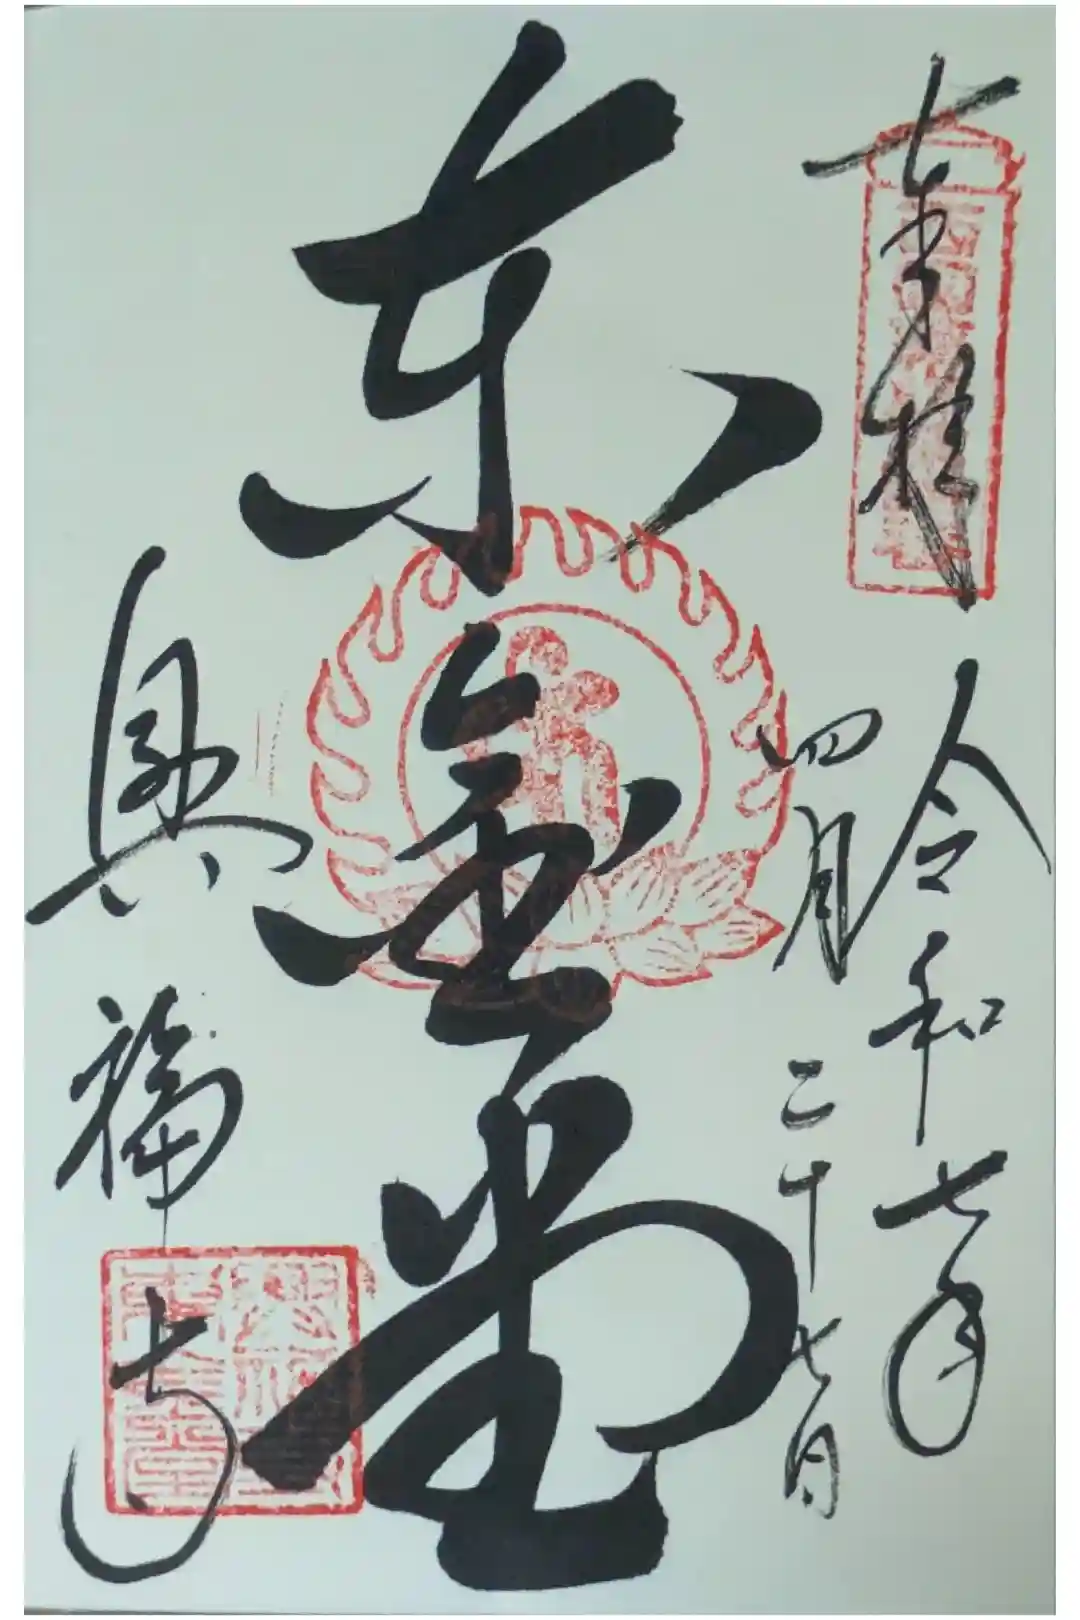 奉拝
令和七年
四月二十七日
東金堂
興福寺